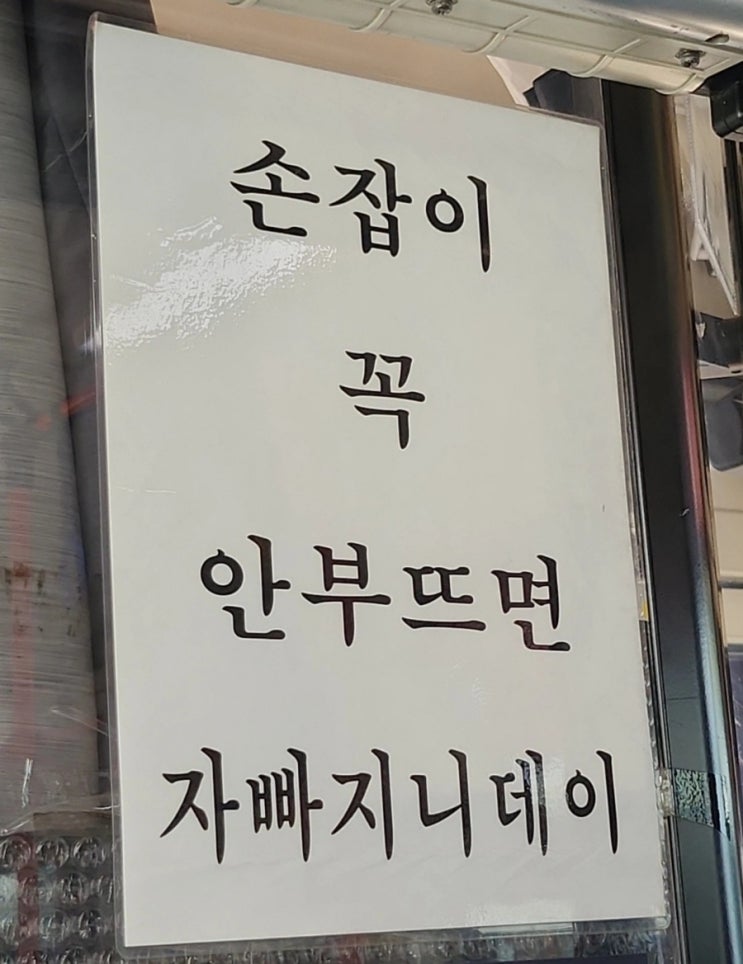 손잡이
꼭
안부뜨면
자빠지니데이